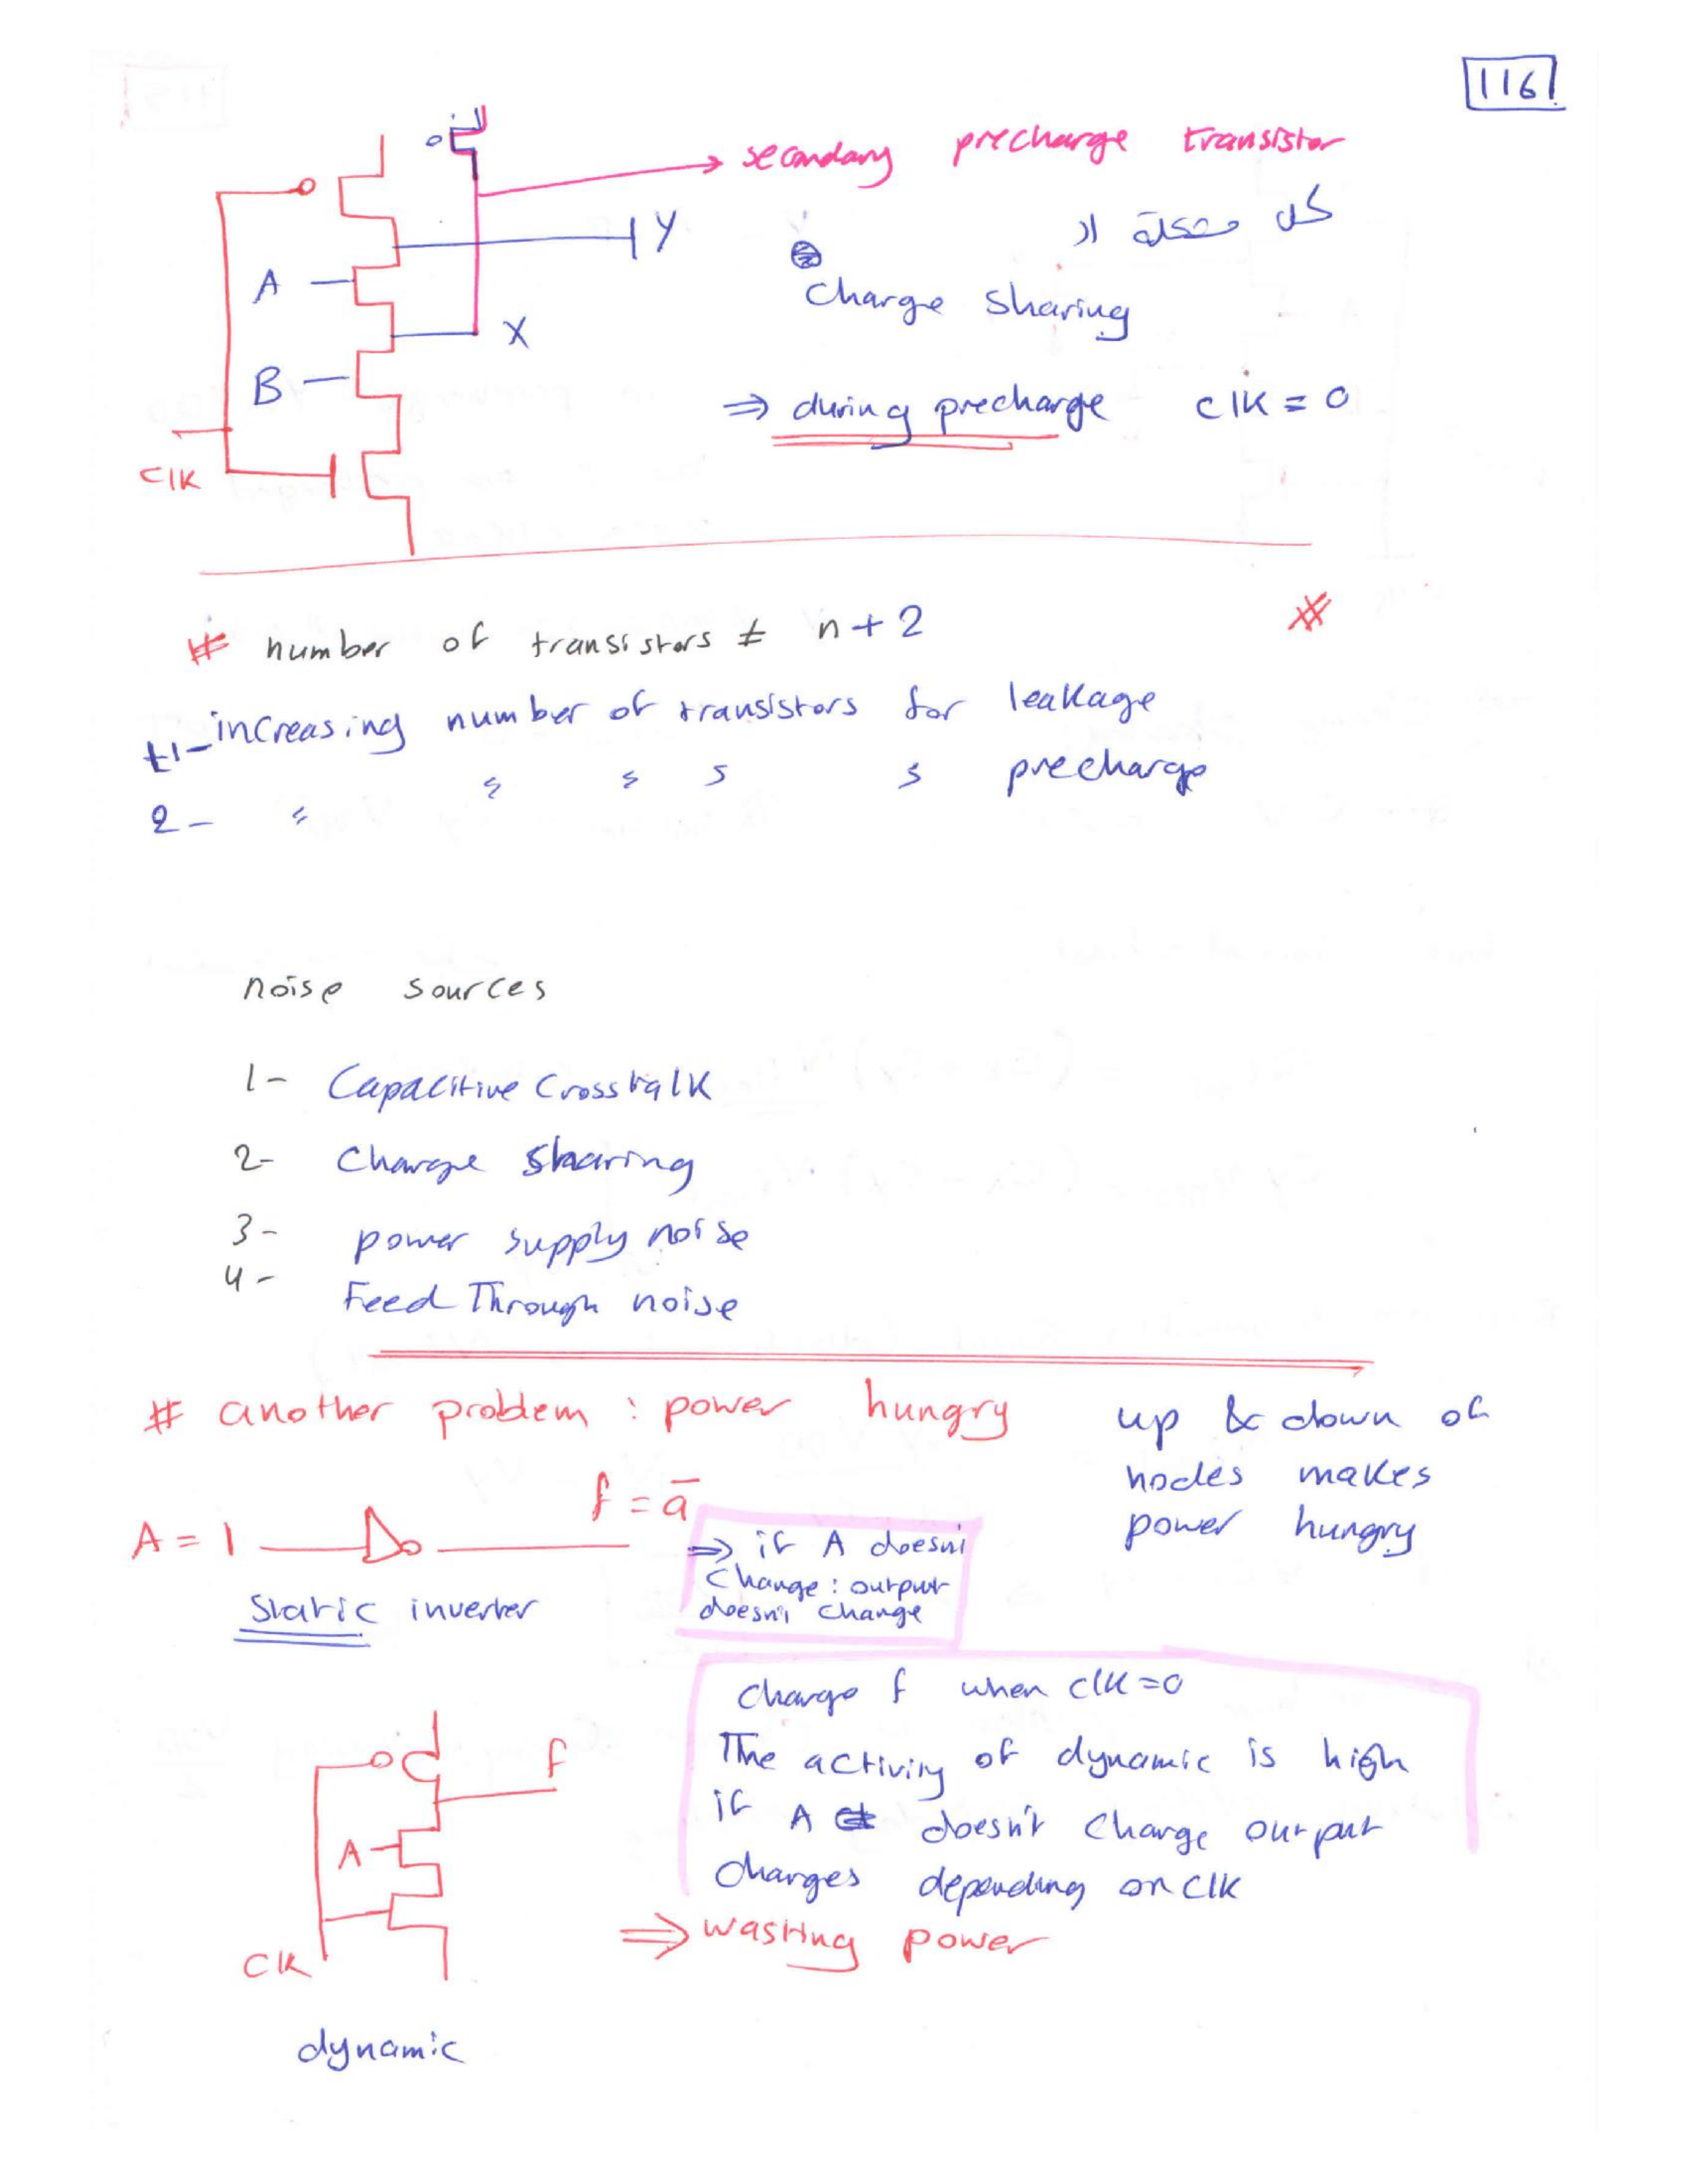 116
secondary precharge transistor
Y
A
حل مشكلة ال
Charge sharing
X
B
⇒ during precharge clk = 0
Clk
# number of transistors ≠ n + 2 #
1- increasing number of transistors for leakage
2- " " " " " precharge
noise sources
1- Capacitive Crosstalk
2- Charge sharing
3- power supply noise
4- Feed Through noise
# another problem : power hungry
up & down of
nodes makes
power hungry
f = a̅
A = 1
⇒ if A doesn't
Change : output
doesn't change
Static inverter
Charge f when clk = 0
f
The activity of dynamic is high
if A doesn't change output
A
changes depending on clk
⇒ wasting power
Clk
dynamic